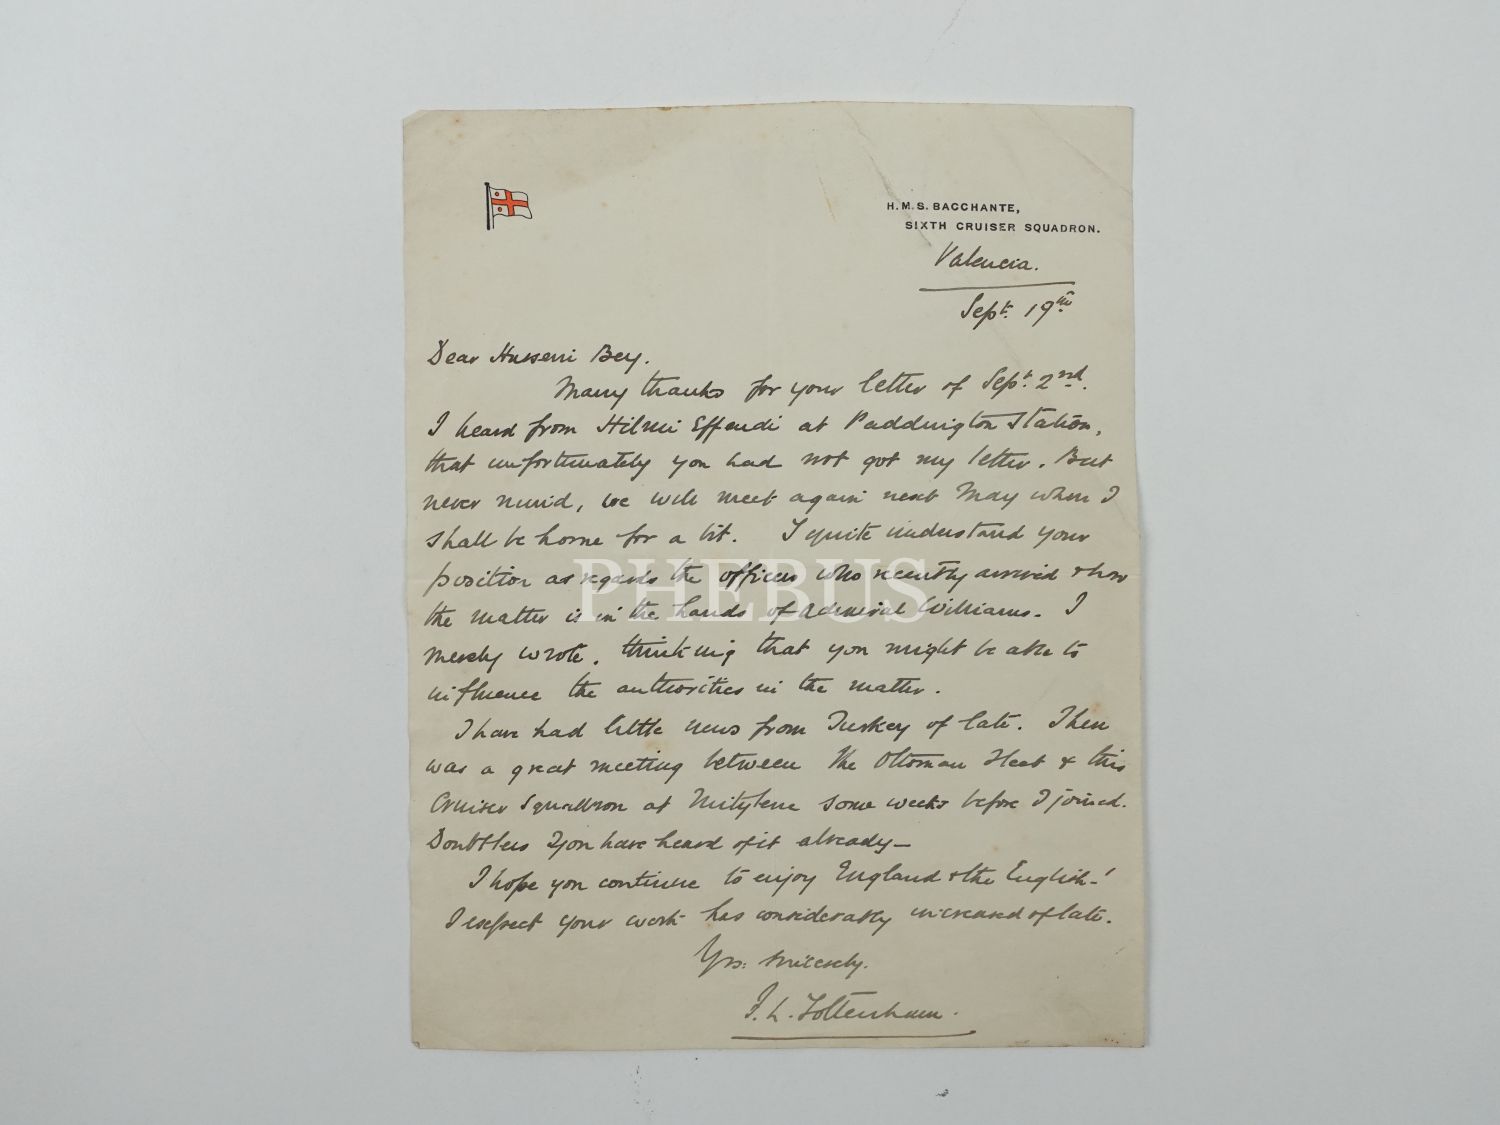 H.M.S. BACCHANTE,
SIXTH CRUISER SQUADRON.
Valencia.
Sept. 19th
Dear Husseni Bey.
Many thanks for your letter of Sept. 2nd.
I heard from Hilmi Effendi at Paddington Station,
that unfortunately you had not got my letter. But
never mind, we will meet again next May when I
shall be home for a bit. I quite understand your
position as regards the officers who recently arrived & how
the matter is in the hands of Admiral Williams. I
merely wrote, thinking that you might be able to
influence the authorities in the matter.
I have had little news from Turkey of late. There
was a great meeting between the Ottoman Fleet & this
Cruiser Squadron at Mitylene some weeks before I joined.
Doubtless you have heard of it already—
I hope you continue to enjoy England & the English-!
I expect your work has considerably increased of late.
Yrs: sincerely.
F. L. Tottenham.
PHEBUS